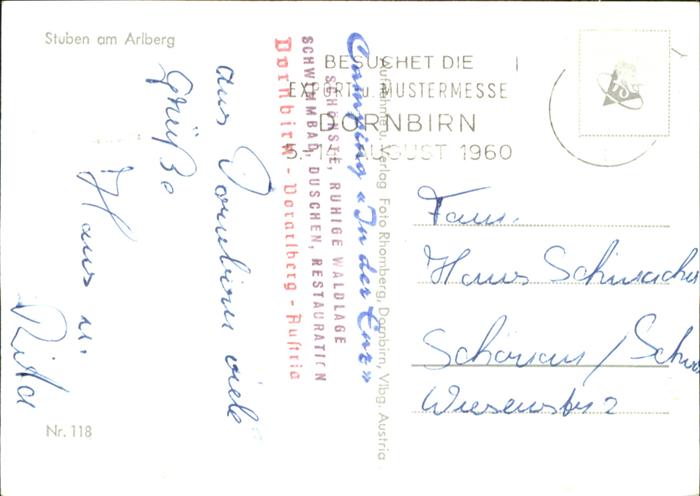 Stuben am Arlberg
aus Dornbirn viele
Grüße
Hans u.
Rita
Nr. 118
Camping «In der Enz»
SCHÖNSTE, RUHIGE WALDLAGE
SCHWIMMBAD, DUSCHEN, RESTAURATION
Dornbirn - Vorarlberg - Austria
Aufnahme u. Verlag Foto Rhomberg, Dornbirn, Vlbg. Austria.
BESUCHET DIE
EXPORT u. MUSTERMESSE
DORNBIRN
AUGUST 1960
Fam.
Hans